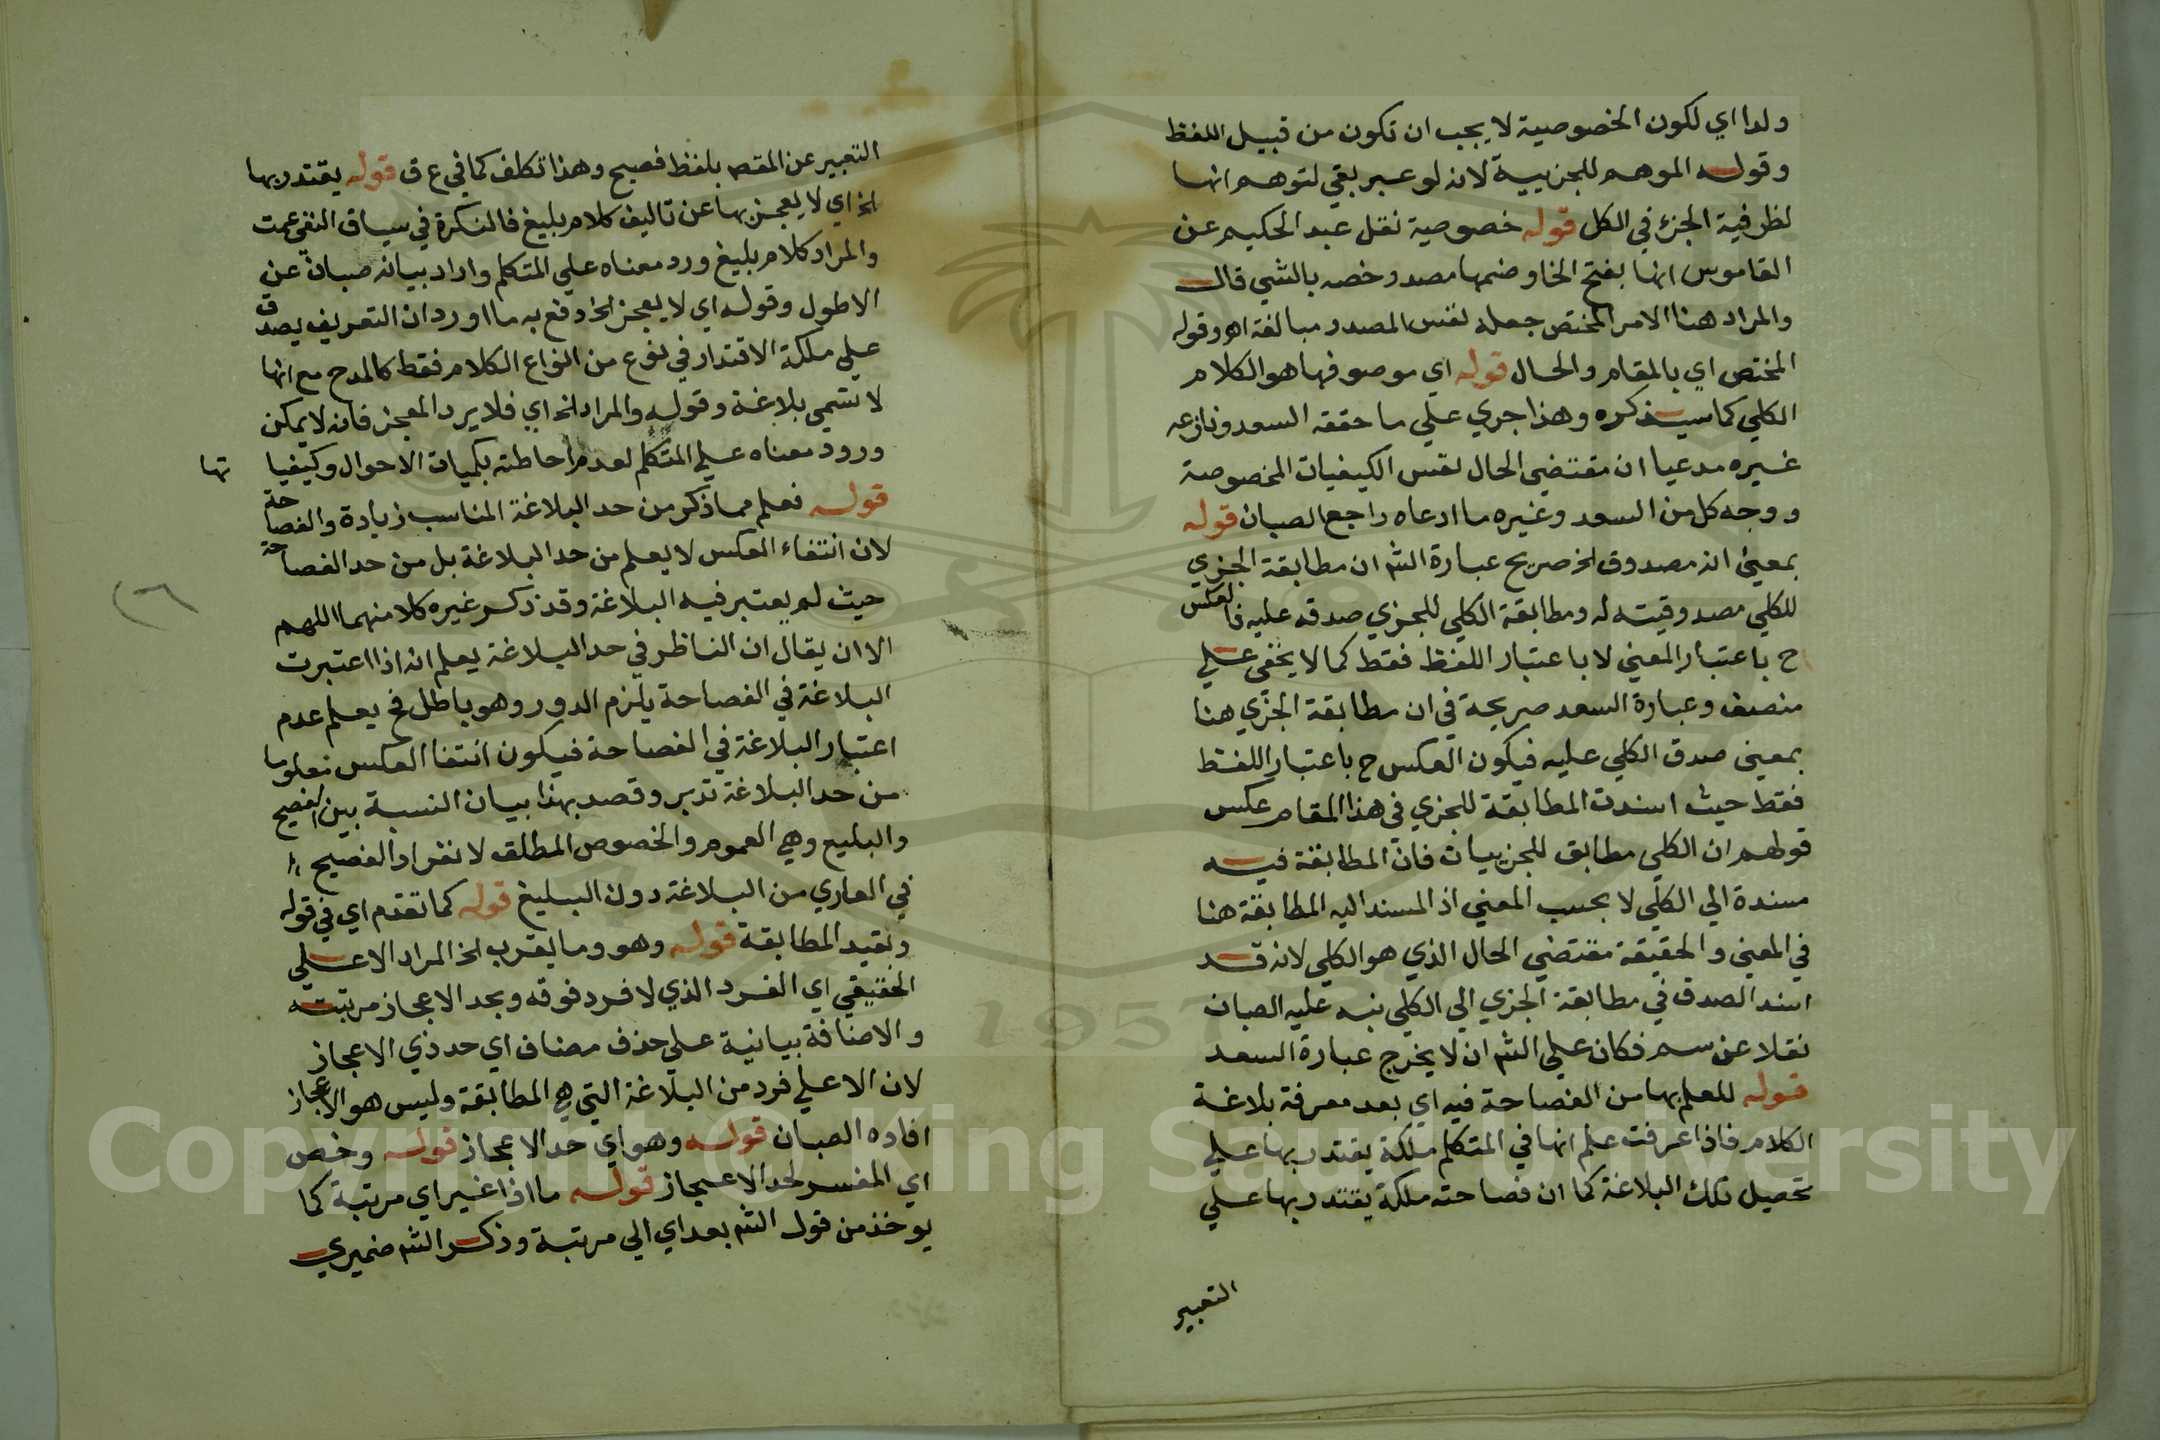 ولذا اي لكون الخصوصية لا يجب ان تكون من قبيل اللفظ
وقوله الموهم للجزيية لانه لو عبر بفي لتوهم انها
لظرفية الجزء في الكل قوله خصوصية نقل عبد الحكيم عن
القاموس انها بفتح الخا وضمها مصدر خصه بالشي قال
والمراد هنا الامر المختص جعله نفس المصدر مبالغة اهـ وقوله
المختص اي بالمقام والحال قوله اي موصوفها هو الكلام
الكلي كما سيذكره وهذا جري علي ما حققه السعد ونازعه
غيره مدعيا ان مقتضي الحال نفس الكيفيات المخصوصة
ووجه كل من السعد وغيره ما ادعاه راجع الصبان قوله
بمعني انه مصدوق الخ صريح عبارة الشه ان مطابقة الجزي
للكلي مصدوقيته له ومطابقة الكلي للجزي صدقه عليه فالعكس
ح باعتبار المعني لا باعتبار اللفظ فقط كما لا يخفي علي
منصف وعبارة السعد صريحة في ان مطابقة الجزي هنا
بمعني صدق الكلي عليه فيكون العكس ح باعتبار اللفظ
فقط حيث اسندت المطابقة للجزي في هذا المقام عكس
قولهم ان الكلي مطابق للجزييات فان المطابقة فيه
مسندة الي الكلي لا بحسب المعني اذ المسند اليه المطابقة هنا
في المعني والحقيقة مقتضي الحال الذي هو الكلي لانه قد
اسند الصدق في مطابقة الجزي الي الكلي نبه عليه الصبان
نقلا عن سم فكان علي الشه ان لا يخرج عبارة السعد
قوله للعلم بها من الفصاحة فيه اي بعد معرفة بلاغة
الكلام فاذا عرفت علم انها في المتكلم ملكة يقتدر بها علي
تحصيل تلك البلاغة كما ان فصاحته ملكة يقتدر بها علي
التعبير
التعبير عن المقصـ بلفظ فصيح وهذا تكلف كما في ع ق قوله يقتدر بها
الخ اي لا يعجز بها عن تاليف كلام بليغ فالنكرة في سياق النفي عمت
والمراد كلام بليغ ورد معناه علي المتكلم واراد بيانه صبان عن
الاطول وقوله اي لا يعجز الخ دفع به ما اورد ان التعريف يصدق
علي ملكة الاقتدار في نوع من انواع الكلام فقط كالمدح مع انها
لا تسمي بلاغة وقوله والمراد الخ اي فلا يرد المعجز فانه لا يمكن
ورود معناه علي المتكلم لعدم احاطته بكميات الاحوال وكيفياتها
قوله فعلم مما ذكر من حد البلاغة المناسب زيادة والفصاحة
لان انتفاء العكس لا يعلم من حد البلاغة بل من حد الفصاحة
حيث لم يعتبر فيه البلاغة وقد ذكر غيره كلا منهما اللهم
الا ان يقال ان الناظر في حد البلاغة يعلم انه اذا اعتبرت
البلاغة في الفصاحة يلزم الدور وهو باطل فح يعلم عدم
اعتبار البلاغة في الفصاحة فيكون انتفا العكس معلوما
من حد البلاغة تدبر وقصد بهذا بيان النسبة بين الفصيح
والبليغ وهي العموم والخصوص المطلق لانفراد الفصيح
في العاري من البلاغة دون البليغ قوله كما تقدم اي في قوله
وتقيد المطابقة قوله وهو وما يقرب الخ المراد الاعلي
الحقيقي اي الفرد الذي لا فرد فوقه وبحد الاعجاز مرتبته
والاضافة بيانية علي حذف مضاف اي حد ذي الاعجاز
لان الاعلي فرد من البلاغة التي هي المطابقة وليس هو الاعجاز
افاده الصبان قوله وهو اي حد الاعجاز قوله وخص
اي المفسر لحد الاعجاز قوله ما اذا غير اي مرتبة كما
يوخذ من قول الشه بعد اي الي مرتبة وذكر الشه ضميري
(٦
1957
Copyright © King Saud University